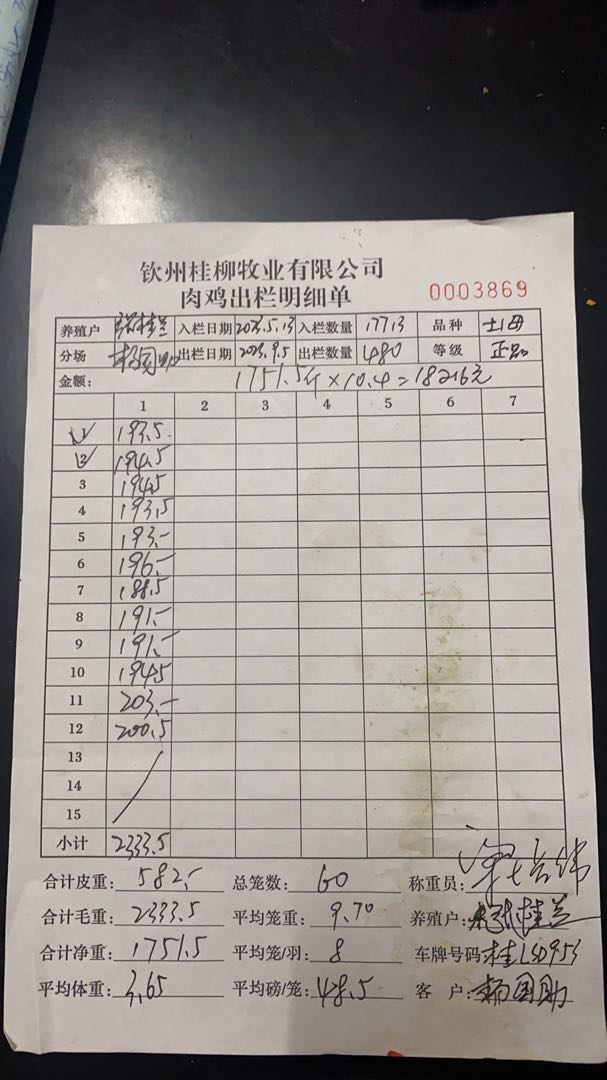 钦州桂柳牧业有限公司
肉鸡出栏明细单
0003869
养殖户 张桂兰 入栏日期 2023.5.13 入栏数量 17713 品种 土1母
分场 杨国助 出栏日期 2023.9.5 出栏数量 480 等级 正品
金额: 1751.5斤×10.4=18216元
1 2 3 4 5 6 7
1 193.5
2 194.5
3 194.5
4 193.5
5 193.-
6 196.-
7 188.5
8 191.-
9 191.-
10 194.5
11 203.-
12 200.5
13
14
15
小计 2333.5
合计皮重: 582.- 总笼数: 60 称重员:
合计毛重: 2333.5 平均笼重: 9.70 养殖户: 张桂兰
合计净重: 1751.5 平均笼/羽: 8 车牌号码: 桂LSD953
平均体重: 3.65 平均磅/笼: 48.5 客 户: 杨国助